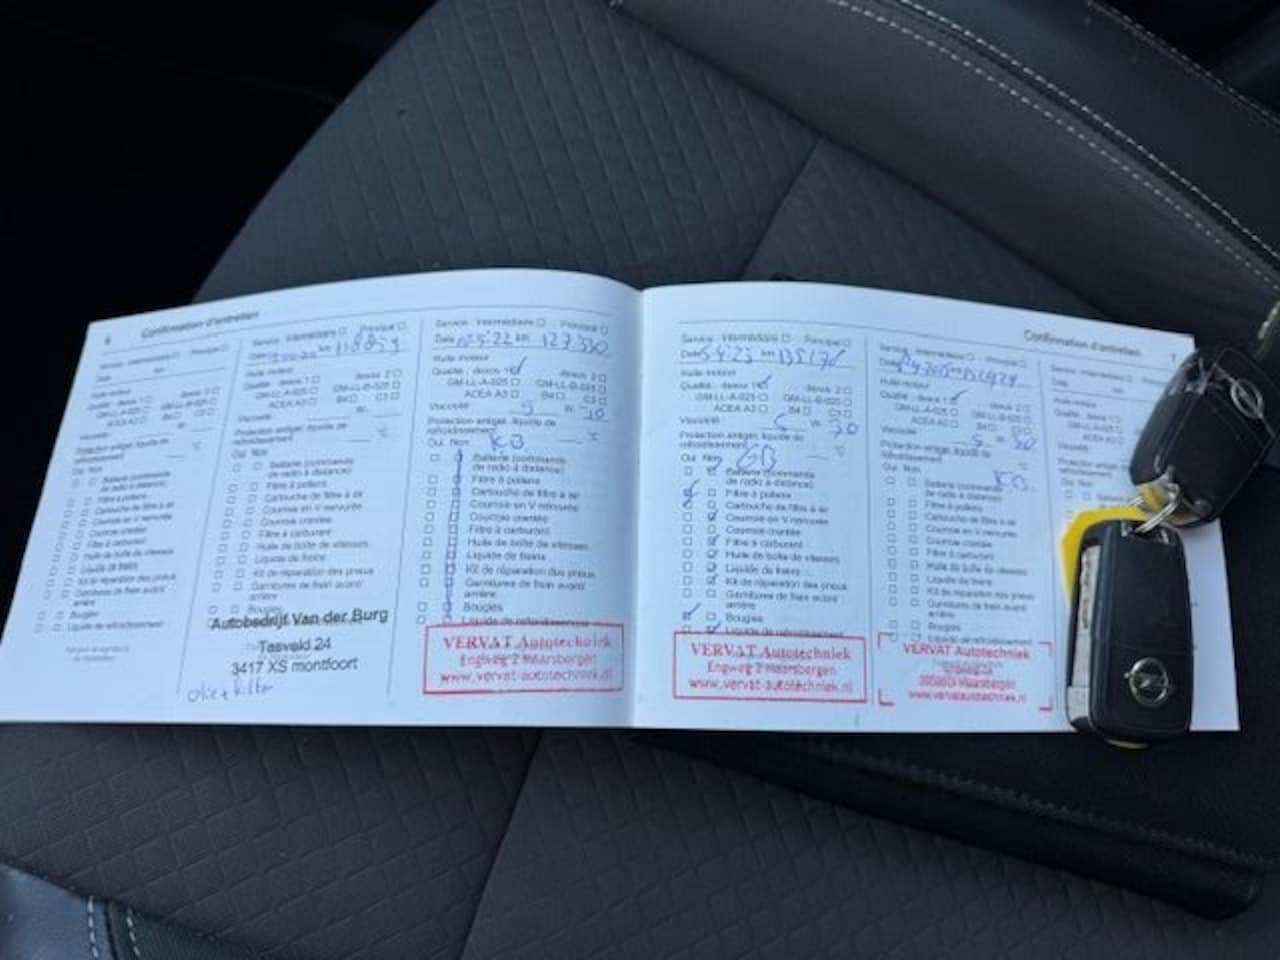 6
Confirmation d'entretien
Service : Intermédiaire Principal
Date km
Huile moteur
Qualité : dexos 1 dexos 2
GM-LL-A-025 GM-LL-B-025
ACEA A3 B4 C3
Viscosité : W-
Protection antigel, liquide de
refroidissement °C
Oui Non
Batterie (commande
de radio à distance)
Filtre à pollens
Cartouche de filtre à air
Courroie en V nervurée
Courroie crantée
Filtre à carburant
Huile de boîte de vitesses
Liquide de freins
Kit de réparation des pneus
Garnitures de frein avant/
arrière
Bougies
Liquide de refroidissement
Service : Intermédiaire Principal
Date km
Huile moteur
Qualité : dexos 1 dexos 2
GM-LL-A-025 GM-LL-B-025
ACEA A3 B4 C3
Viscosité : W-
Protection antigel, liquide de
refroidissement °C
Oui Non
Batterie (commande
de radio à distance)
Filtre à pollens
Cartouche de filtre à air
Courroie en V nervurée
Courroie crantée
Filtre à carburant
Huile de boîte de vitesses
Liquide de freins
Kit de réparation des pneus
Garnitures de frein avant/
arrière
Bougies
Autobedrijf Van der Burg
Tasveld 24
3417 XS montfoort
Olie + filter
Service : Intermédiaire Principal
Date 5.22 km 127330
Huile moteur
Qualité : dexos 1 dexos 2
GM-LL-A-025 GM-LL-B-025
ACEA A3 B4 C3
Viscosité 5 W- 30
Protection antigel, liquide de
refroidissement °C
Oui Non KB
Batterie (commande
de radio à distance)
Filtre à pollens
Cartouche de filtre à air
Courroie en V nervurée
Courroie crantée
Filtre à carburant
Huile de boîte de vitesses
Liquide de freins
Kit de réparation des pneus
Garnitures de frein avant/
arrière
Bougies
Liquide de refroidissement
VERVAT Autotechniek
Engweg 2 Maarsbergen
www.vervat-autotechniek.nl
Confirmation d'entretien 7
Service : Intermédiaire Principal
Date 5.4.23 km
Huile moteur
Qualité : dexos 1 dexos 2
GM-LL-A-025 GM-LL-B-025
ACEA A3 B4 C3
Viscosité 5 W- 30
Protection antigel, liquide de
refroidissement °C
Oui Non GB
Batterie (commande
de radio à distance)
Filtre à pollens
Cartouche de filtre à air
Courroie en V nervurée
Courroie crantée
Filtre à carburant
Huile de boîte de vitesses
Liquide de freins
Kit de réparation des pneus
Garnitures de frein avant/
arrière
Bougies
Liquide de refroidissement
VERVAT Autotechniek
Engweg 2 Maarsbergen
www.vervat-autotechniek.nl
Service : Intermédiaire Principal
Date
Huile moteur
Qualité : dexos 1 dexos 2
GM-LL-A-025 GM-LL-B-025
ACEA A3 B4 C3
Viscosité 5 W- 30
Protection antigel, liquide de
refroidissement °C
Oui Non KB
Batterie (commande
de radio à distance)
Filtre à pollens
Cartouche de filtre à air
Courroie en V nervurée
Courroie crantée
Filtre à carburant
Huile de boîte de vitesses
Liquide de freins
Kit de réparation des pneus
Garnitures de frein avant/
arrière
Bougies
Liquide de refroidissement
VERVAT Autotechniek
Maarsbergen
www.vervatautotechniek.nl
Service : Intermédiaire
Date km
Huile moteur
Qualité : dexos 1
GM-LL-A-025
ACEA A3
Viscosité
Protection antigel
refroidissement
Oui Non